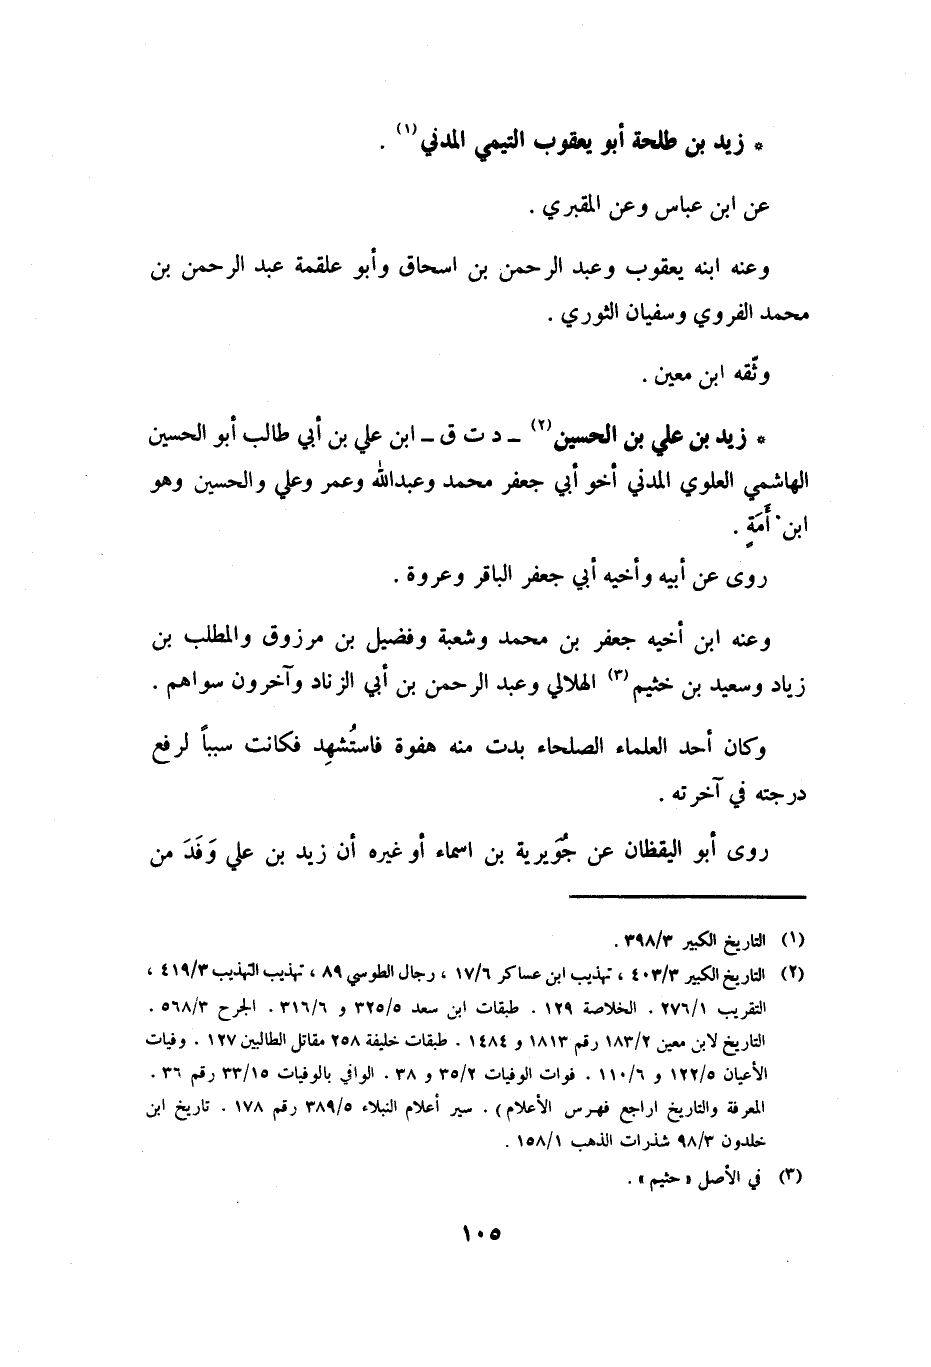 * زيد بن طلحة أبو يعقوب التيمي المدني (١) .
عن ابن عباس وعن المقبري .
وعنه ابنه يعقوب وعبد الرحمن بن اسحاق وأبو علقمة عبد الرحمن بن
محمد الفروي وسفيان الثوري .
وثّقه ابن معين .
* زيد بن علي بن الحسين (٢) ـ د ت ق ـ ابن علي بن أبي طالب أبو الحسين
الهاشمي العلوي المدني أخو أبي جعفر محمد وعبدالله وعمر وعلي والحسين وهو
ابن أَمَةٍ .
روى عن أبيه وأخيه أبي جعفر الباقر وعروة .
وعنه ابن أخيه جعفر بن محمد وشعبة وفضيل بن مرزوق والمطلب بن
زياد وسعيد بن خثيم (٣) الهلالي وعبد الرحمن بن أبي الزناد وآخرون سواهم .
وكان أحد العلماء الصلحاء بدت منه هفوة فاستُشهِد فكانت سبباً لرفع
درجته في آخرته .
روى أبو اليقظان عن جُوَيرية بن اسماء أو غيره أن زيد بن علي وَفَدَ من
(١) التاريخ الكبير ٣٩٨/٣ .
(٢) التاريخ الكبير ٤٠٣/٣ ، تهذيب ابن عساكر ١٧/٦ ، رجال الطوسي ٨٩ ، تهذيب التهذيب ٤١٩/٣ ،
التقريب ٢٧٦/١ . الخلاصة ١٢٩ . طبقات ابن سعد ٣٢٥/٥ و ٣١٦/٦ . الجرح ٥٦٨/٣ .
التاريخ لابن معين ١٨٣/٢ رقم ١٨١٣ و ١٤٨٤ . طبقات خليفة ٢٥٨ مقاتل الطالبين ١٢٧ . وفيات
الأعيان ١٢٢/٥ و ١١٠/٦ . فوات الوفيات ٣٥/٢ و ٣٨ . الوافي بالوفيات ٣٣/١٥ رقم ٣٦ .
المعرفة والتاريخ (راجع فهرس الأعلام) . سير أعلام النبلاء ٣٨٩/٥ رقم ١٧٨ . تاريخ ابن
خلدون ٩٨/٣ شذرات الذهب ١٥٨/١ .
(٣) في الأصل « حثيم » .
١٠٥